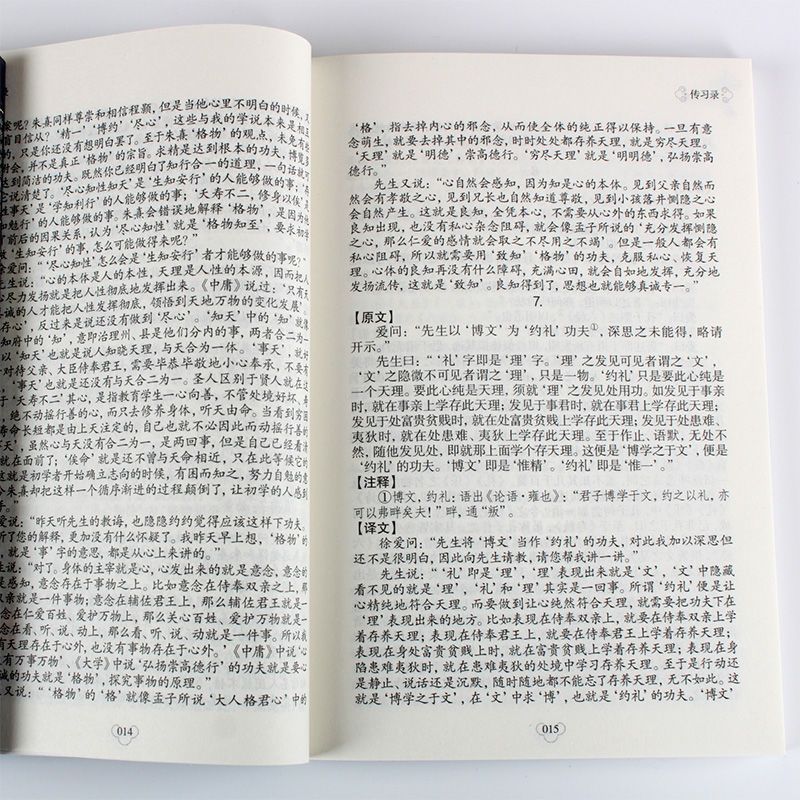 朱熹同样尊崇和相信程颢,但是当他心里不明白的时候,又
呢?‘精一’‘博约’‘尽心’,这些与我的学说本来是相
盲目信从?
只是你还没有想明白罢了。至于朱熹‘格物’的观点,未免有些
并不是真正‘格物’的宗旨。求精是达到根本的功夫,博览
达到简洁的功夫。既然你已经明白了知行合一的道理,一句话就
说清楚了。‘尽心知性知天’是‘生知安行’的人能够做的事;‘存
事天’是‘学知利行’的人能够做的事;‘夭寿不二,修身以俟’
勉行’的人能够做的事。朱熹会错误地解释‘格物’,是因为
了前后的因果关系,认为‘尽心知性’就是‘格物知至’,要求初学
做‘生知安行’的事,怎么可能做得来呢?”
爱问:“‘尽心知性’怎么会是‘生知安行’者才能够做的事呢?”
先生说:“心的本体是人的本性,天理是人性的本源,因而把人
心尽力发扬就是把人性彻底地发挥出来。《中庸》说过:‘只有天
真诚的人才能把人性发挥彻底,领悟到天地万物的变化发展’。
存心’,反过来是说还没有做到‘尽心’。‘知天’中的‘知’就
知府中的‘知’,意即治理州、县是他们分内的事,两者合二为一
以‘知天’也就是说人知晓天理,与天合为一体。‘事天’,就好
对待父亲、大臣侍奉君王,需要毕恭毕敬地小心奉承,不要有
‘事天’也就是还没有与天合二为一。圣人区别于贤人就在这
‘夭寿不二’其心,是指教育学生一心向善,不管处境好坏、寿
绝不动摇行善的心,而只去修养身体,听天由命。当看到穷困
寿命长短都是由上天注定的,自己也就不必因此而动摇行善的
天’,虽然心与天没有合二为一,是两回事,但是自己已经看清
就在面前了;‘俟命’就是还不曾与天命相近,只在此等候它的
这就是初学者开始确立志向的时候,有困而知之,努力自勉的意
朱熹却把这样一个循序渐进的过程颠倒了,让初学的人感到
爱说:“昨天听先生的教诲,也隐隐约约觉得应该这样下功夫。
解释,更加没有什么怀疑了。我昨天早上想,‘格物’的
就是‘事’字的意思,都是从心上来讲的。”
先生说:“对了。身体的主宰就是心,心发出来的就是意念,意念的
是感知,意念存在于事物之上。比如意念在侍奉双亲之上,那
亲就是一件事物;意念在辅佐君王上,那么辅佐君王就是一
念在仁爱百姓、爱护万物上,那么关心百姓、爱护万物就是一
意念在看、听、说、动上,那么看、听、说、动就是一件事。所以我
有天理存在于心外,也没有事物存在于心外。’《中庸》中说‘心
有万事万物’、《大学》中说‘弘扬崇高德行’的功夫就是要
诚的功夫就是‘格物’,探究事物的原理。”
又说:“‘格物’的‘格’就像孟子所说‘大人格君心’中的
014
传习录
‘格’,指去掉内心的邪念,从而使全体的纯正得以保持。一旦有意
念萌生,就要去掉其中的邪念,时时处处都存养天理,就是穷尽天理。
‘天理’就是‘明德’,崇高德行。‘穷尽天理’就是‘明明德’,弘扬崇高
德行。”
先生又说:“心自然会感知,因为知是心的本体。见到父亲自然而
然会有孝敬之心,见到兄长也自然知道尊敬,见到小孩落井恻隐之心
会自然产生。这就是良知,全凭本心,不需要从心外的东西求得。如果
良知出现,也没有私心杂念阻碍,就会像孟子所说的‘充分发挥恻隐
之心,那么仁爱的感情就会取之不尽用之不竭’。但是一般人都会有
私心阻碍,所以就需要用‘致知’‘格物’的功夫,克服私心、恢复天
理。心体的良知再没有什么障碍,充满心田,就会自如地发挥,充分地
发扬流传,这就是‘致知’。良知得到了,思想也就能够真诚专一。”
7.
【原文】
爱问:“先生以‘博文’为‘约礼’功夫①,深思之未能得,略请
开示。”
先生曰:“‘礼’字即是‘理’字。‘理’之发见可见者谓之‘文’,
‘文’之隐微不可见者谓之‘理’,只是一物。‘约礼’只是要此心纯是
一个天理。要此心纯是天理,须就‘理’之发见处用功。如发见于事亲
时,就在事亲上学存此天理;发见于事君时,就在事君上学存此天理;
发见于处富贵贫贱时,就在处富贵贫贱上学存此天理;发见于处患难、
夷狄时,就在处患难、夷狄上学存此天理。至于作止、语默,无处不
然,随他发见处,即就那上面学个存天理。这便是‘博学之于文’,便是
‘约礼’的功夫。‘博文’即是‘惟精’。‘约礼’即是‘惟一’。”
【注释】
①博文,约礼:语出《论语·雍也》:“君子博学于文,约之以礼,亦
可以弗畔矣夫!”畔,通“叛”。
【译文】
徐爱问:“先生将‘博文’当作‘约礼’的功夫,对此我加以深思但
还不是很明白,因此向先生请教,请您帮我讲一讲。”
先生说:“‘礼’即是‘理’,‘理’表现出来就是‘文’,‘文’中隐藏
看不见的就是‘理’,‘礼’和‘理’其实是一回事。所谓‘约礼’便是让
心精纯地符合天理。而要做到让心纯然符合天理,就需要把功夫下在
‘理’表现出来的地方。比如表现在侍奉双亲上,就要在侍奉双亲上学
着存养天理;表现在侍奉君王上,就要在侍奉君王上学着存养天理;
表现在身处富贵贫贱上时,就要在富贵贫贱上学着存养天理;表现在身
陷患难夷狄时,就在患难夷狄的处境中学习存养天理。至于是行动还
是静止、说话还是沉默,随时随地都不能忘了存养天理,无不如此。这
就是‘博学之于文’,在‘文’中求‘博’,也就是‘约礼’的功夫。‘博文’
015